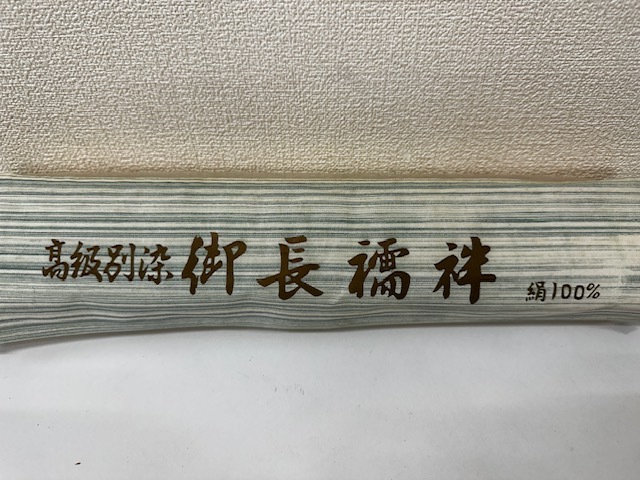 高級別染 御長襦袢 絹100%